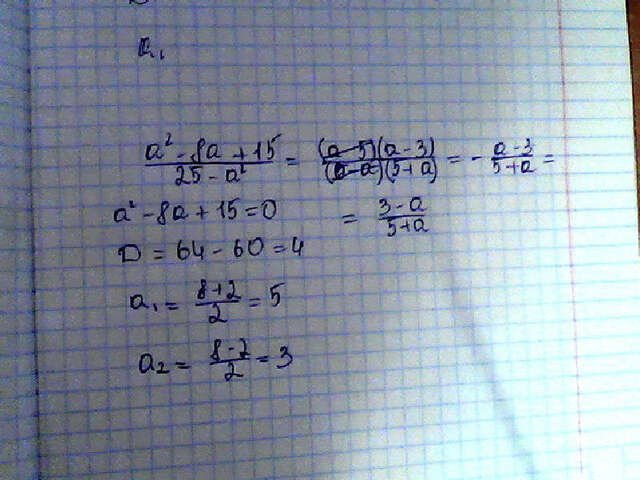 a₁
a² - 8a + 15 / 25 - a² = (a-5)(a-3) / (5-a)(5+a) = - a-3 / 5+a =
a² - 8a + 15 = 0 = 3-a / 5+a
D = 64 - 60 = 4
a₁ = 8+2 / 2 = 5
a₂ = 8-2 / 2 = 3